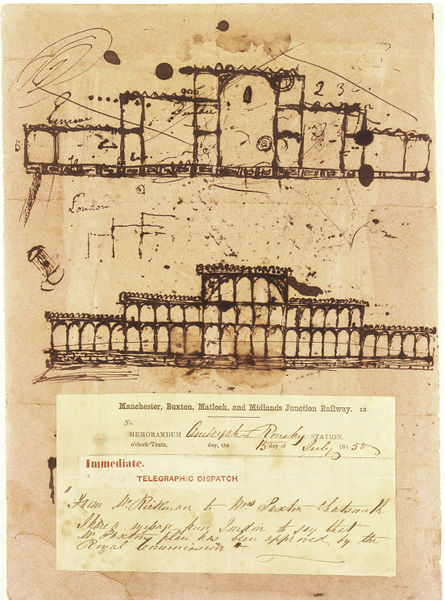 2 3
London
Manchester, Buxton, Matlock, and Midlands Junction Railway. 13
No.
MEMORANDUM STATION.
o'clock Train. day, the 15 day of July 1850
Immediate.
TELEGRAPHIC DISPATCH
From Mr to Mrs Paxton Chatsworth
I have a message from London to say that
Mr Paxtons plan has been approved by the
Royal Commission